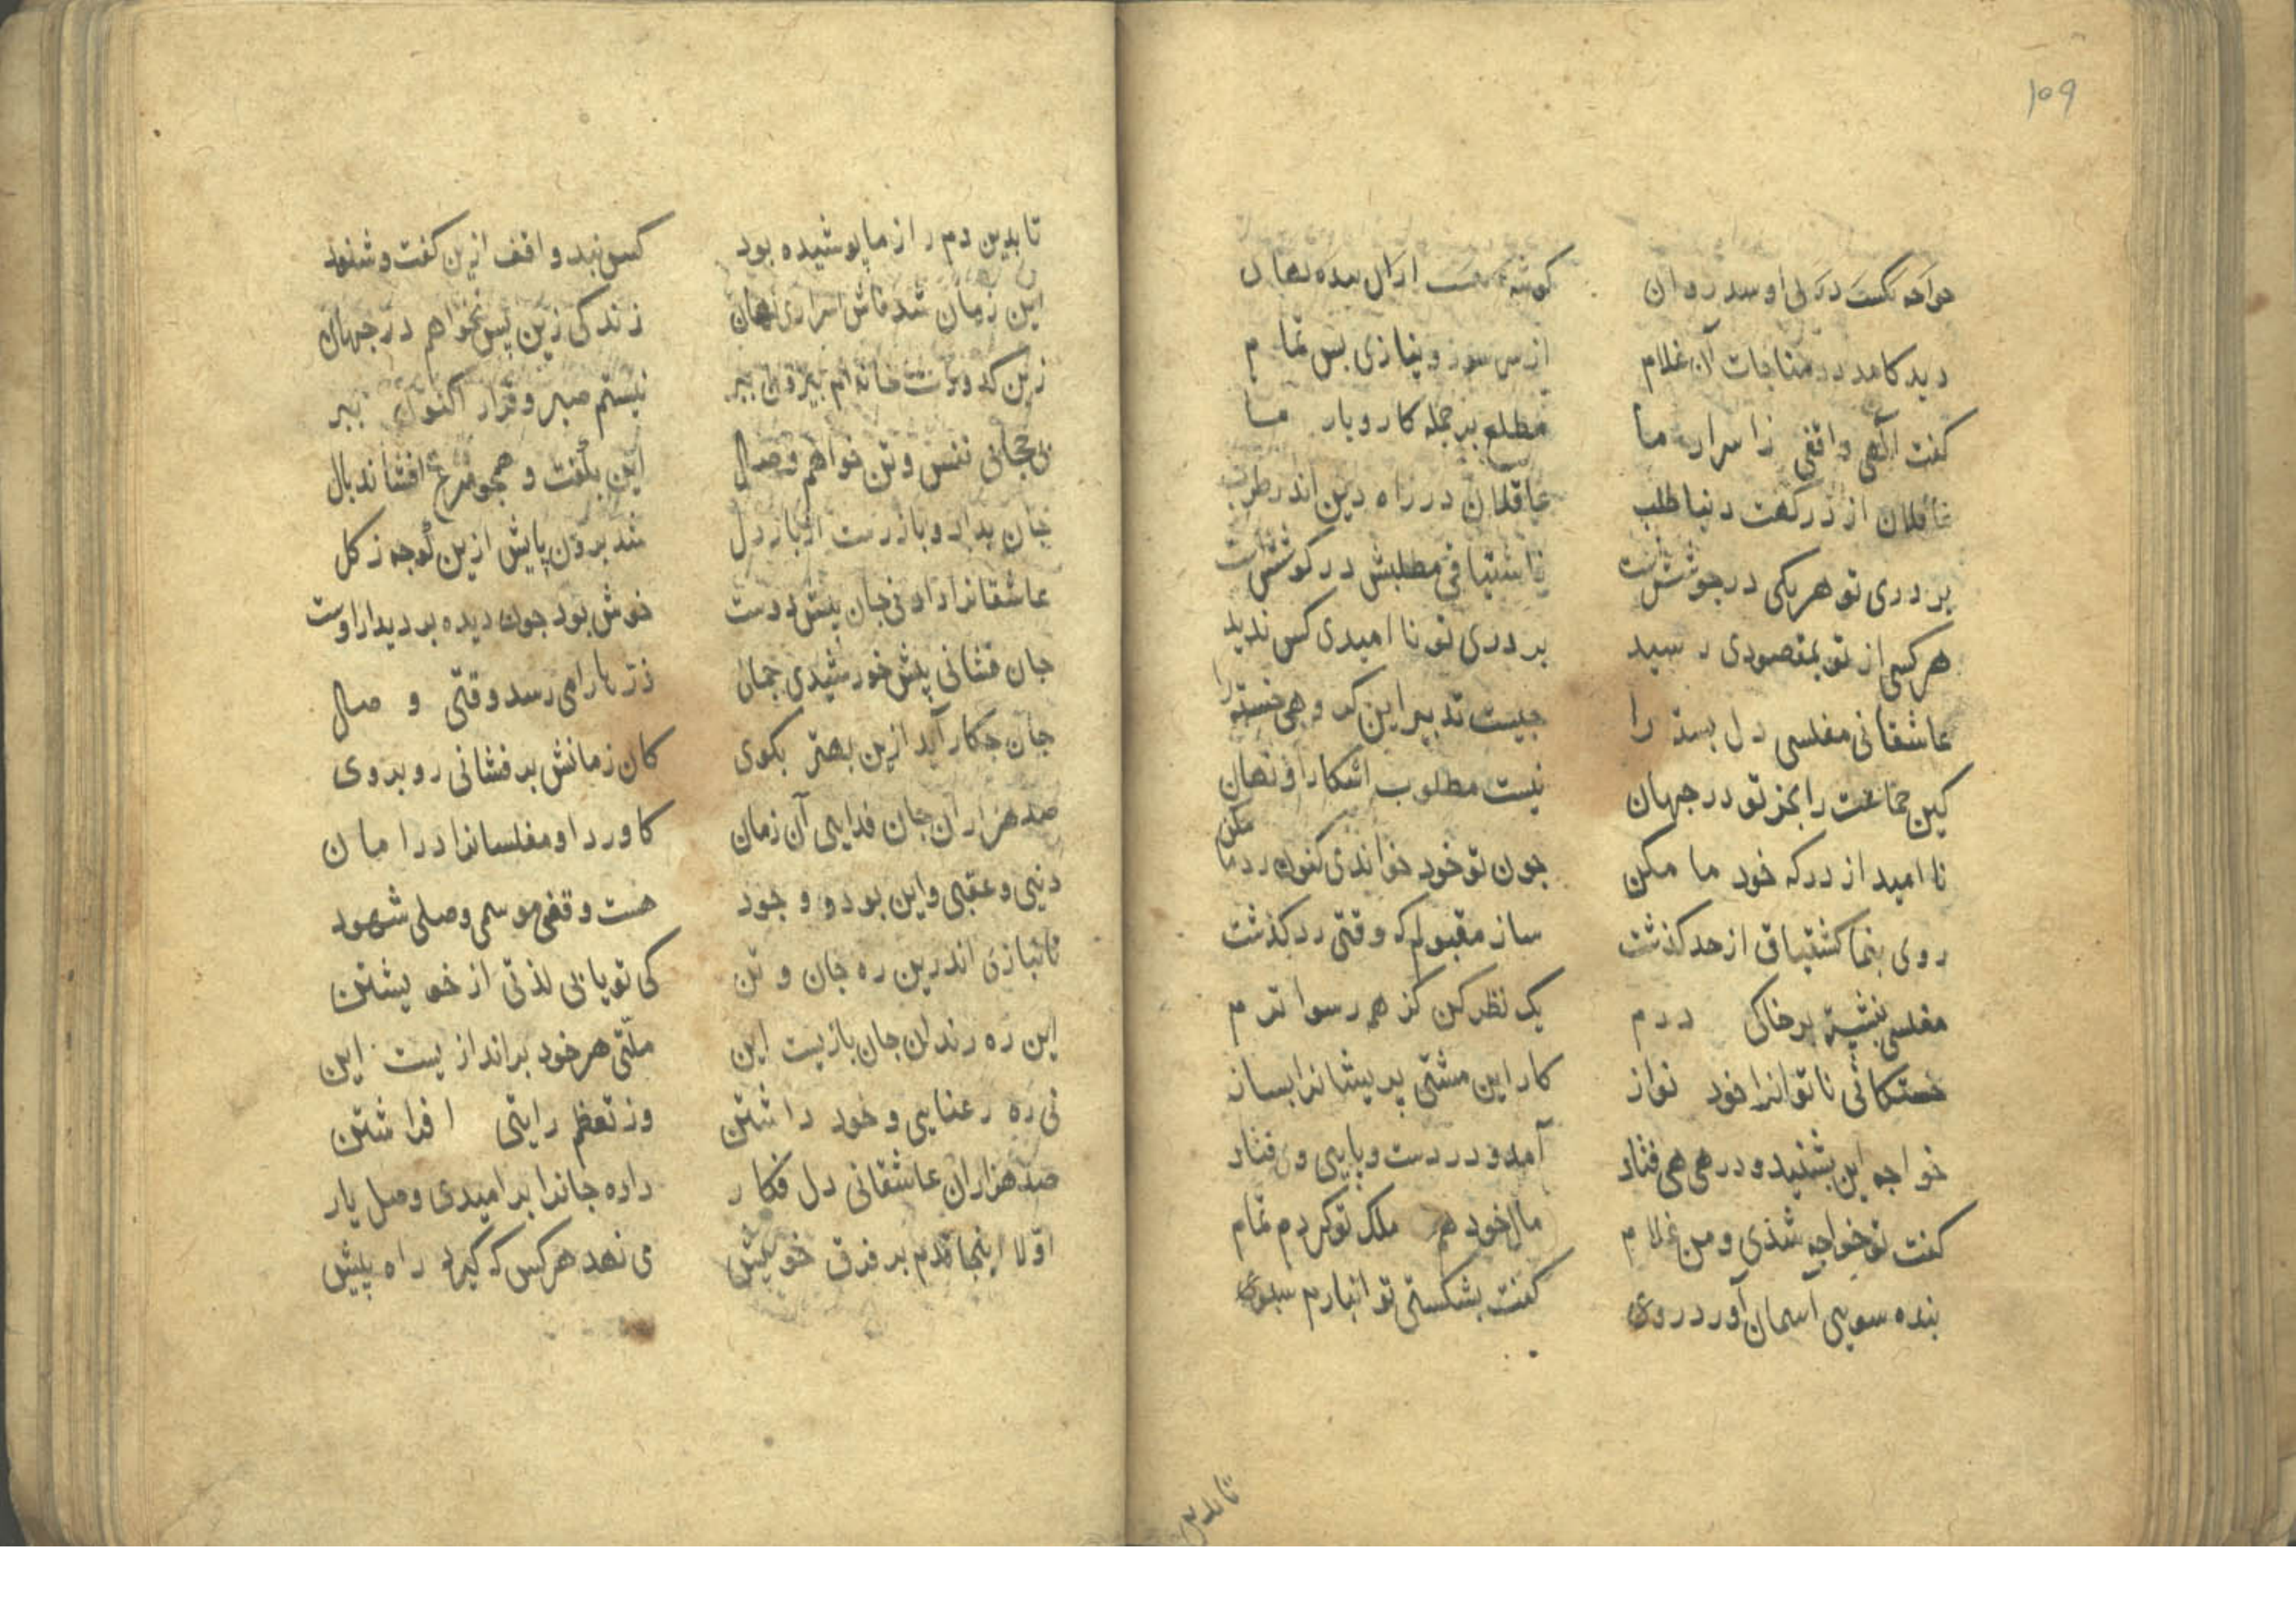 ۱۰۹
خواجه گشت در پی او شد روان کوشه گشت از آن بنده نهان
دید کامد در مناجات آن غلام از سر سوز و نیازی بس تمام
کفت الهی واقفی ز اسرار ما مطلع بر جمله کار و بار ما
غافلان از درکهت دنیا طلب عاقلان در راه دین اندر طرب
بر دری تو هر یکی در جوششت ز اشتیاقی مطلبش در کوششت
هر کسی از تو بمقصودی رسید بر دری تو نا امیدی کس ندید
عاشقانی مفلسی دل بسته را جیست تدبیر این کروهی خسته را
کین جماعت را بجز تو در جهان نیست مطلوب اشکارا و نهان
نا امید از درکه خود ما مکن جون تو خود خواندی کنون رد ما مکن
روی بنما کشتیاق از حد کذشت ساز مقبولم که وقتی رد کذشت
مفلسی بنشسته بر خاکی درم یک نظر کن کز همه رسوا ترم
خستکانی ناتوانرا خود نواز کار این مشتی پریشانرا بساز
خواجه این بشنید و در هی هی فتاد آمد و در دست و پایی وی فتاد
کفت تو خواجه شذی و من غلام مال خود هم ملک تو کردم تمام
بنده سویی آسمان آورد روی کفت بشکستی تو انبارم سبوی
تا بدین
تا بدین دم راز ما پوشیده بود کس نبد واقف ازین کفت و شنود
این زمان شد فاش اسراری نهان زندکی زین پس نخواهم در جهان
زین کدورت خانه ام بیرون ببر نیستم صبر و قرار اکنون ببر
بی حجابی نفس و تن خواهم وصال این بکفت و همجو مرغ افشاند بال
جان بداد و باز رست از بار دل شد برون پایش ازین کوجه ز کل
عاشقانرا دادنی جان پیش دوست خوش بود جون دیده بر دیدار اوست
جان فشانی پیش خورشیدی جمال ذره ها را می رسد وقتی وصال
جان جکار آید ازین بهتر بکوی کان زمانش بر فشانی رو بروی
صد هزاران جان فدایی آن زمان کاورد او مفلسانرا در امان
دنیی و عقبی و این بود و وجود هست وقفی موسمی وصلی شهود
تا نبازی اندرین ره جان و تن کی تو یابی لذتی از خویشتن
این ره رندان جان بازیست این ملتی هر خود براندازیست این
نی ره رعنایی و خود داشتن وز تعظم رایتی افراشتن
صد هزاران عاشقانی دل فکار داده جانرا بر امیدی وصل یار
اولا اینجا قدم بر فرق خویش می نهد هر کس که کیرد راه پیش